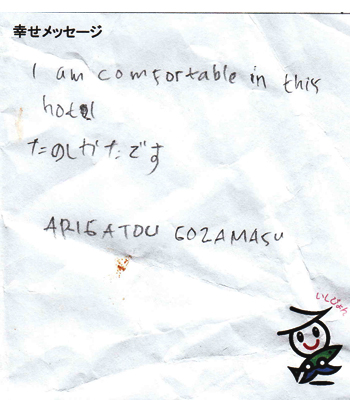 幸せメッセージ
I am comfortable in this
hotel
たのしかたです
ARIGATOU GOZAMASU